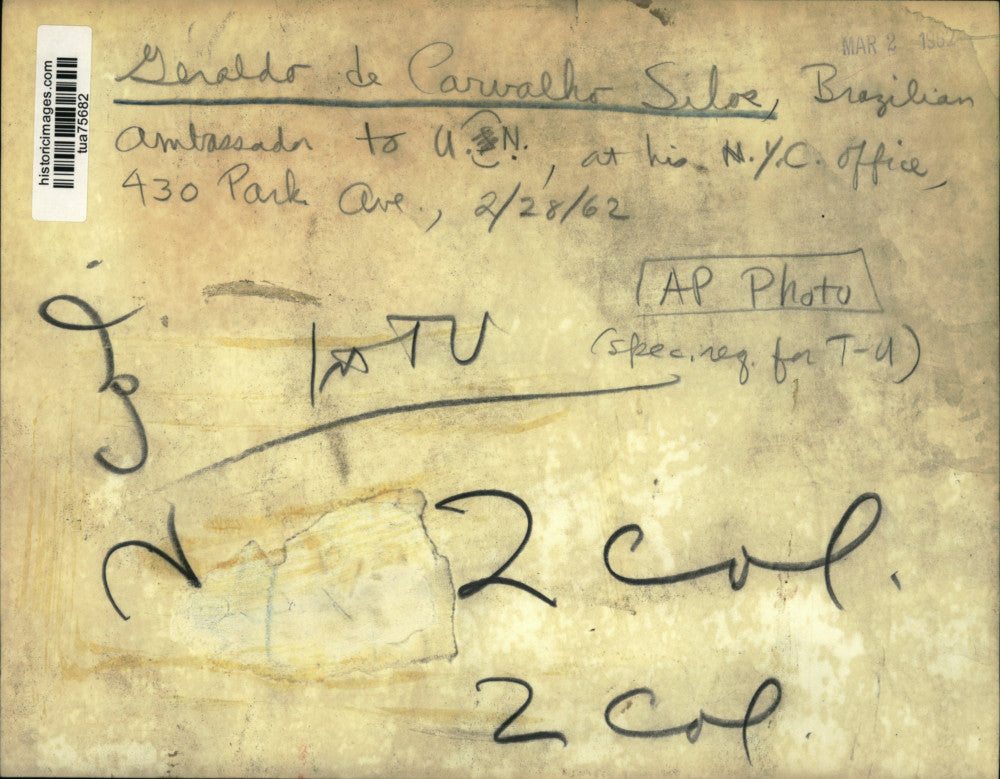 MAR 2 1962
historicimages.com
tua75682
Geraldo de Carvalho Silos, Brazilian
ambassador to U.N., at his N.Y.C. office,
430 Park Ave., 2/28/62
AP Photo
(spec. req. for T-U)
TU
2 Col.
2 Col